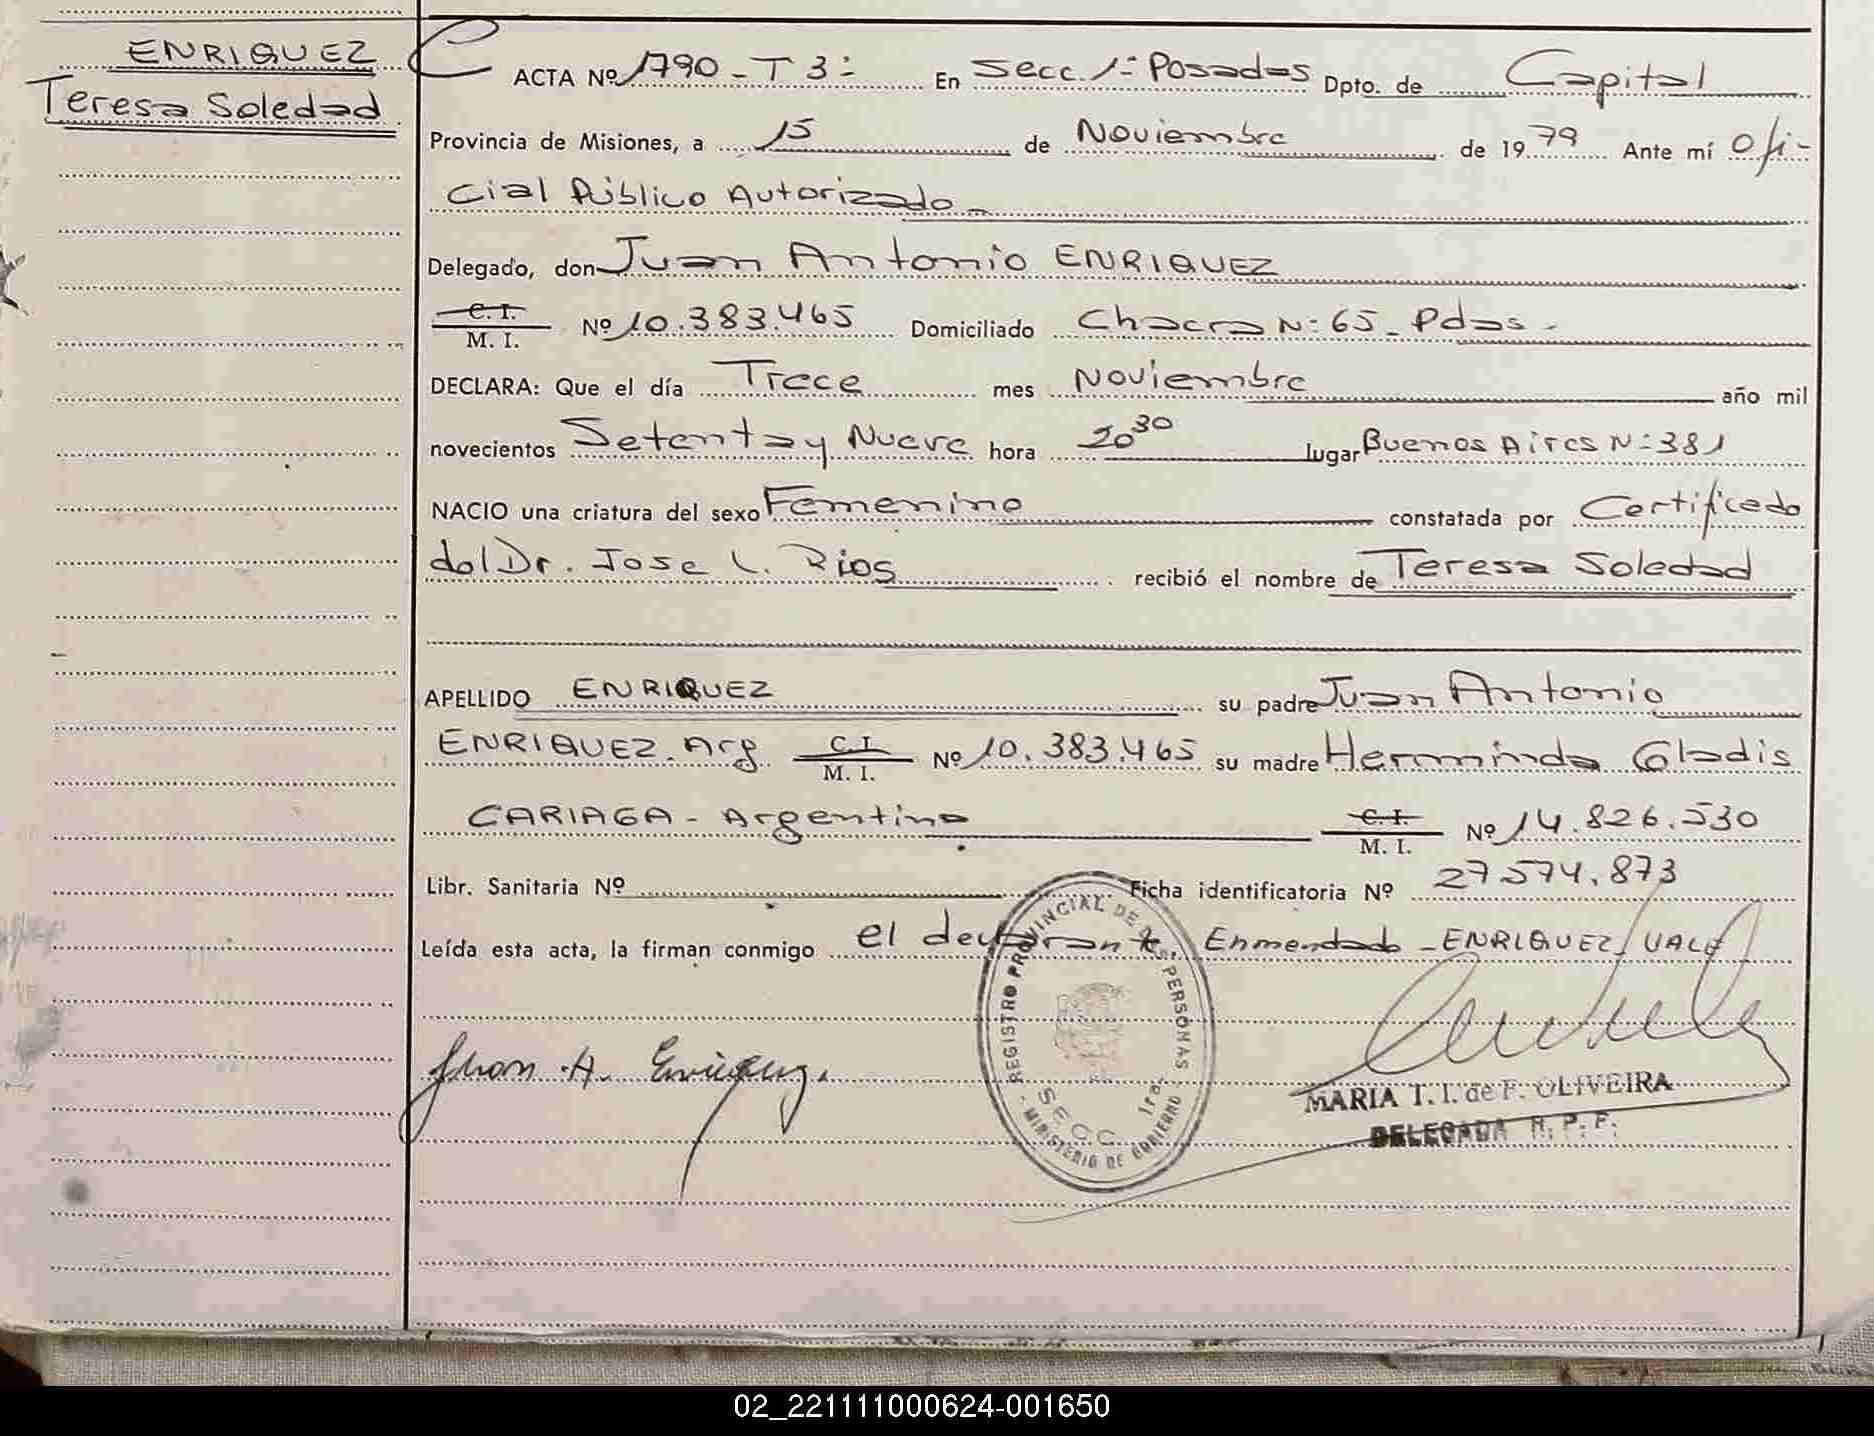 ENRIQUEZ
Teresa Soledad
ACTA Nº 1790 - T 3: En Secc. 1ª Posadas Dpto. de Capital
Provincia de Misiones, a 15 de Noviembre de 1979 Ante mí Ofi-
cial Público Autorizado
Delegado, don Juan Antonio ENRIQUEZ
C. I.
M. I. Nº 10.383.465 Domiciliado Chacra Nº 65 - Pdas -
DECLARA: Que el día Trece mes Noviembre año mil
novecientos Setenta y Nueve hora 20 30 lugar Buenos Aires Nº 381
NACIO una criatura del sexo Femenino constatada por Certificado
del Dr. Jose L. Rios recibió el nombre de Teresa Soledad
APELLIDO ENRIQUEZ su padre Juan Antonio
ENRIQUEZ. Arg C. I.
M. I. Nº 10.383.465 su madre Herminda Gladis
CARIAGA - Argentina C. I.
M. I. Nº 14.826.530
Libr. Sanitaria Nº Ficha identificatoria Nº 27574.873
Leída esta acta, la firman conmigo el declarante. Enmendado - ENRIQUEZ / VALE
Juan A. Enriquez.
REGISTRO PROVINCIAL DE LAS PERSONAS
SECC 1ra.
MINISTERIO DE GOBIERNO
MARIA T. I. de F. OLIVEIRA
DELEGADA R. P. P.
02_221111000624-001650